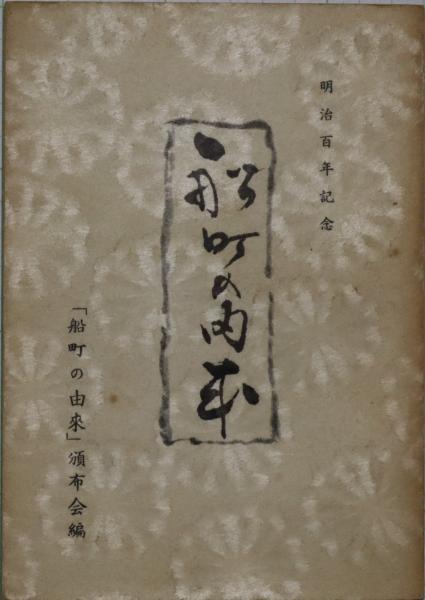 明治百年記念
船町の由来
「船町の由來」頒布会編